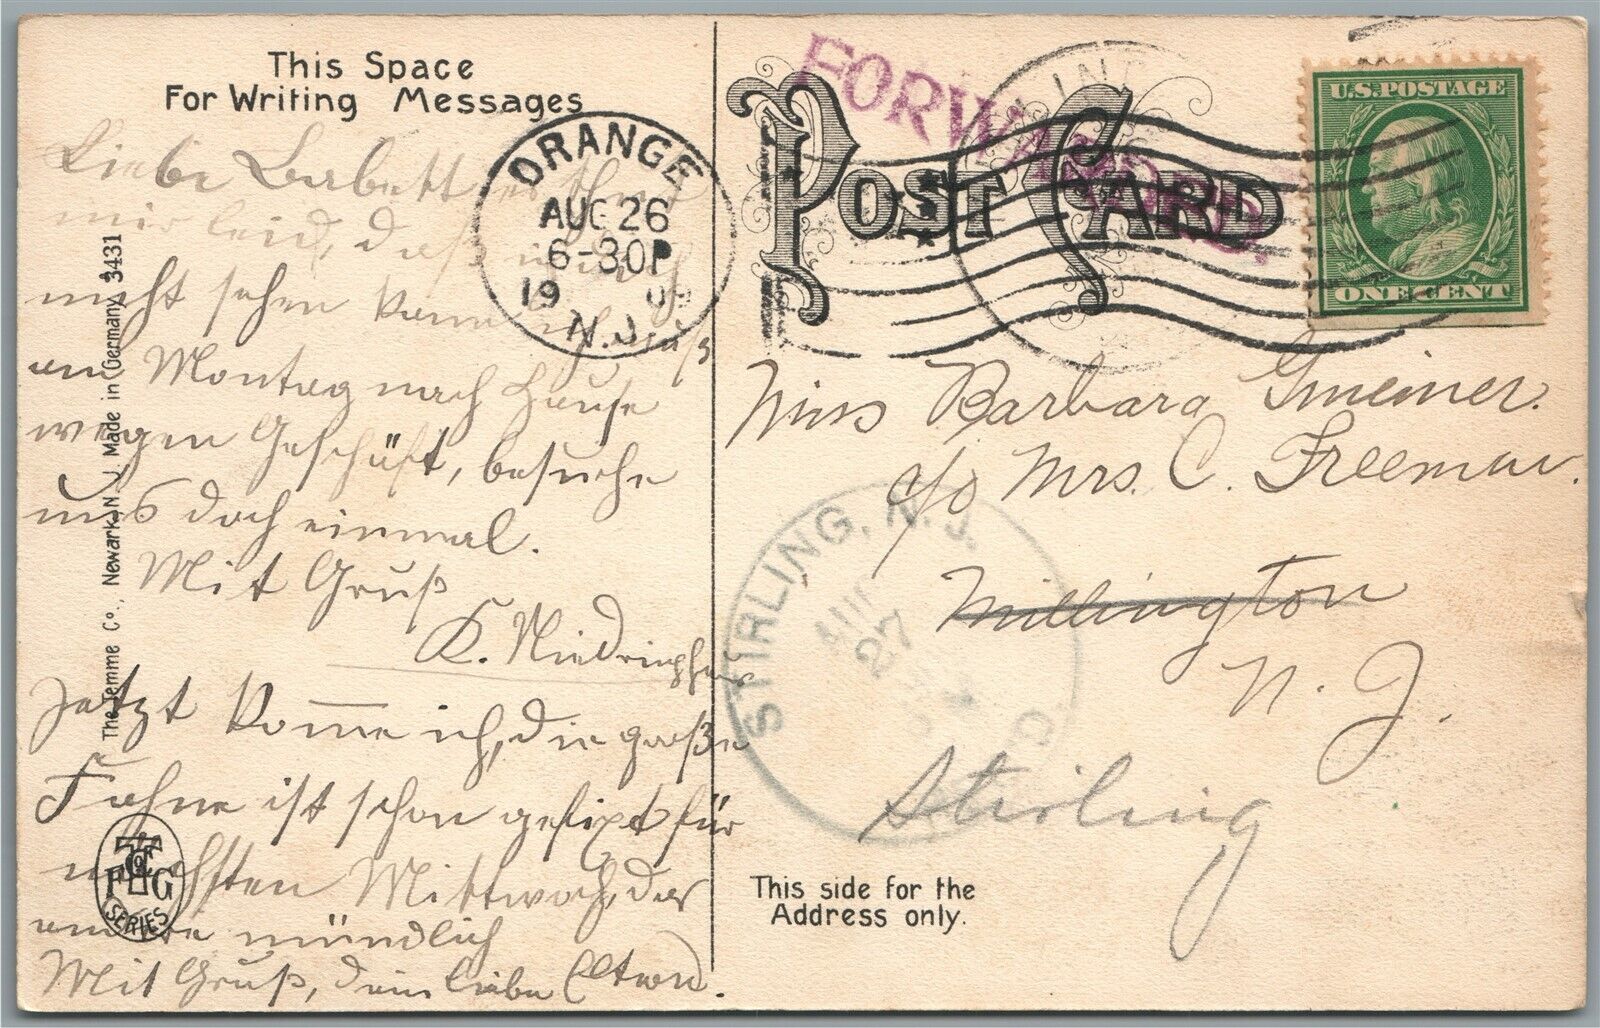 This Space
For Writing Messages
Liebe Barbett es thut
mir leid, daß ich
nicht sehen kann, ich muß
am Montag nach Hause
wegen Geschäft, besuche
uns doch einmal.
Mit Gruß
K.
Jetzt komme ich, die große
Fahne ist schon gefixt für
nächsten Mittwoch, das
andere mündlich
Mit Gruß, dein liebe
The Temme Co., Newark, N.J. Made in Germany. 3431
F T Co G
SERIES
ORANGE
AUG 26
6-30P
19 0
N.J.
POST CARD
FORWARDED.
U.S. POSTAGE
ONE CENT
Miss Barbara Gmeiner.
c/o Mrs. C. Freeman.
Millington
N. J.
Stirling
STIRLING, N.J.
AUG
27
This side for the
Address only.